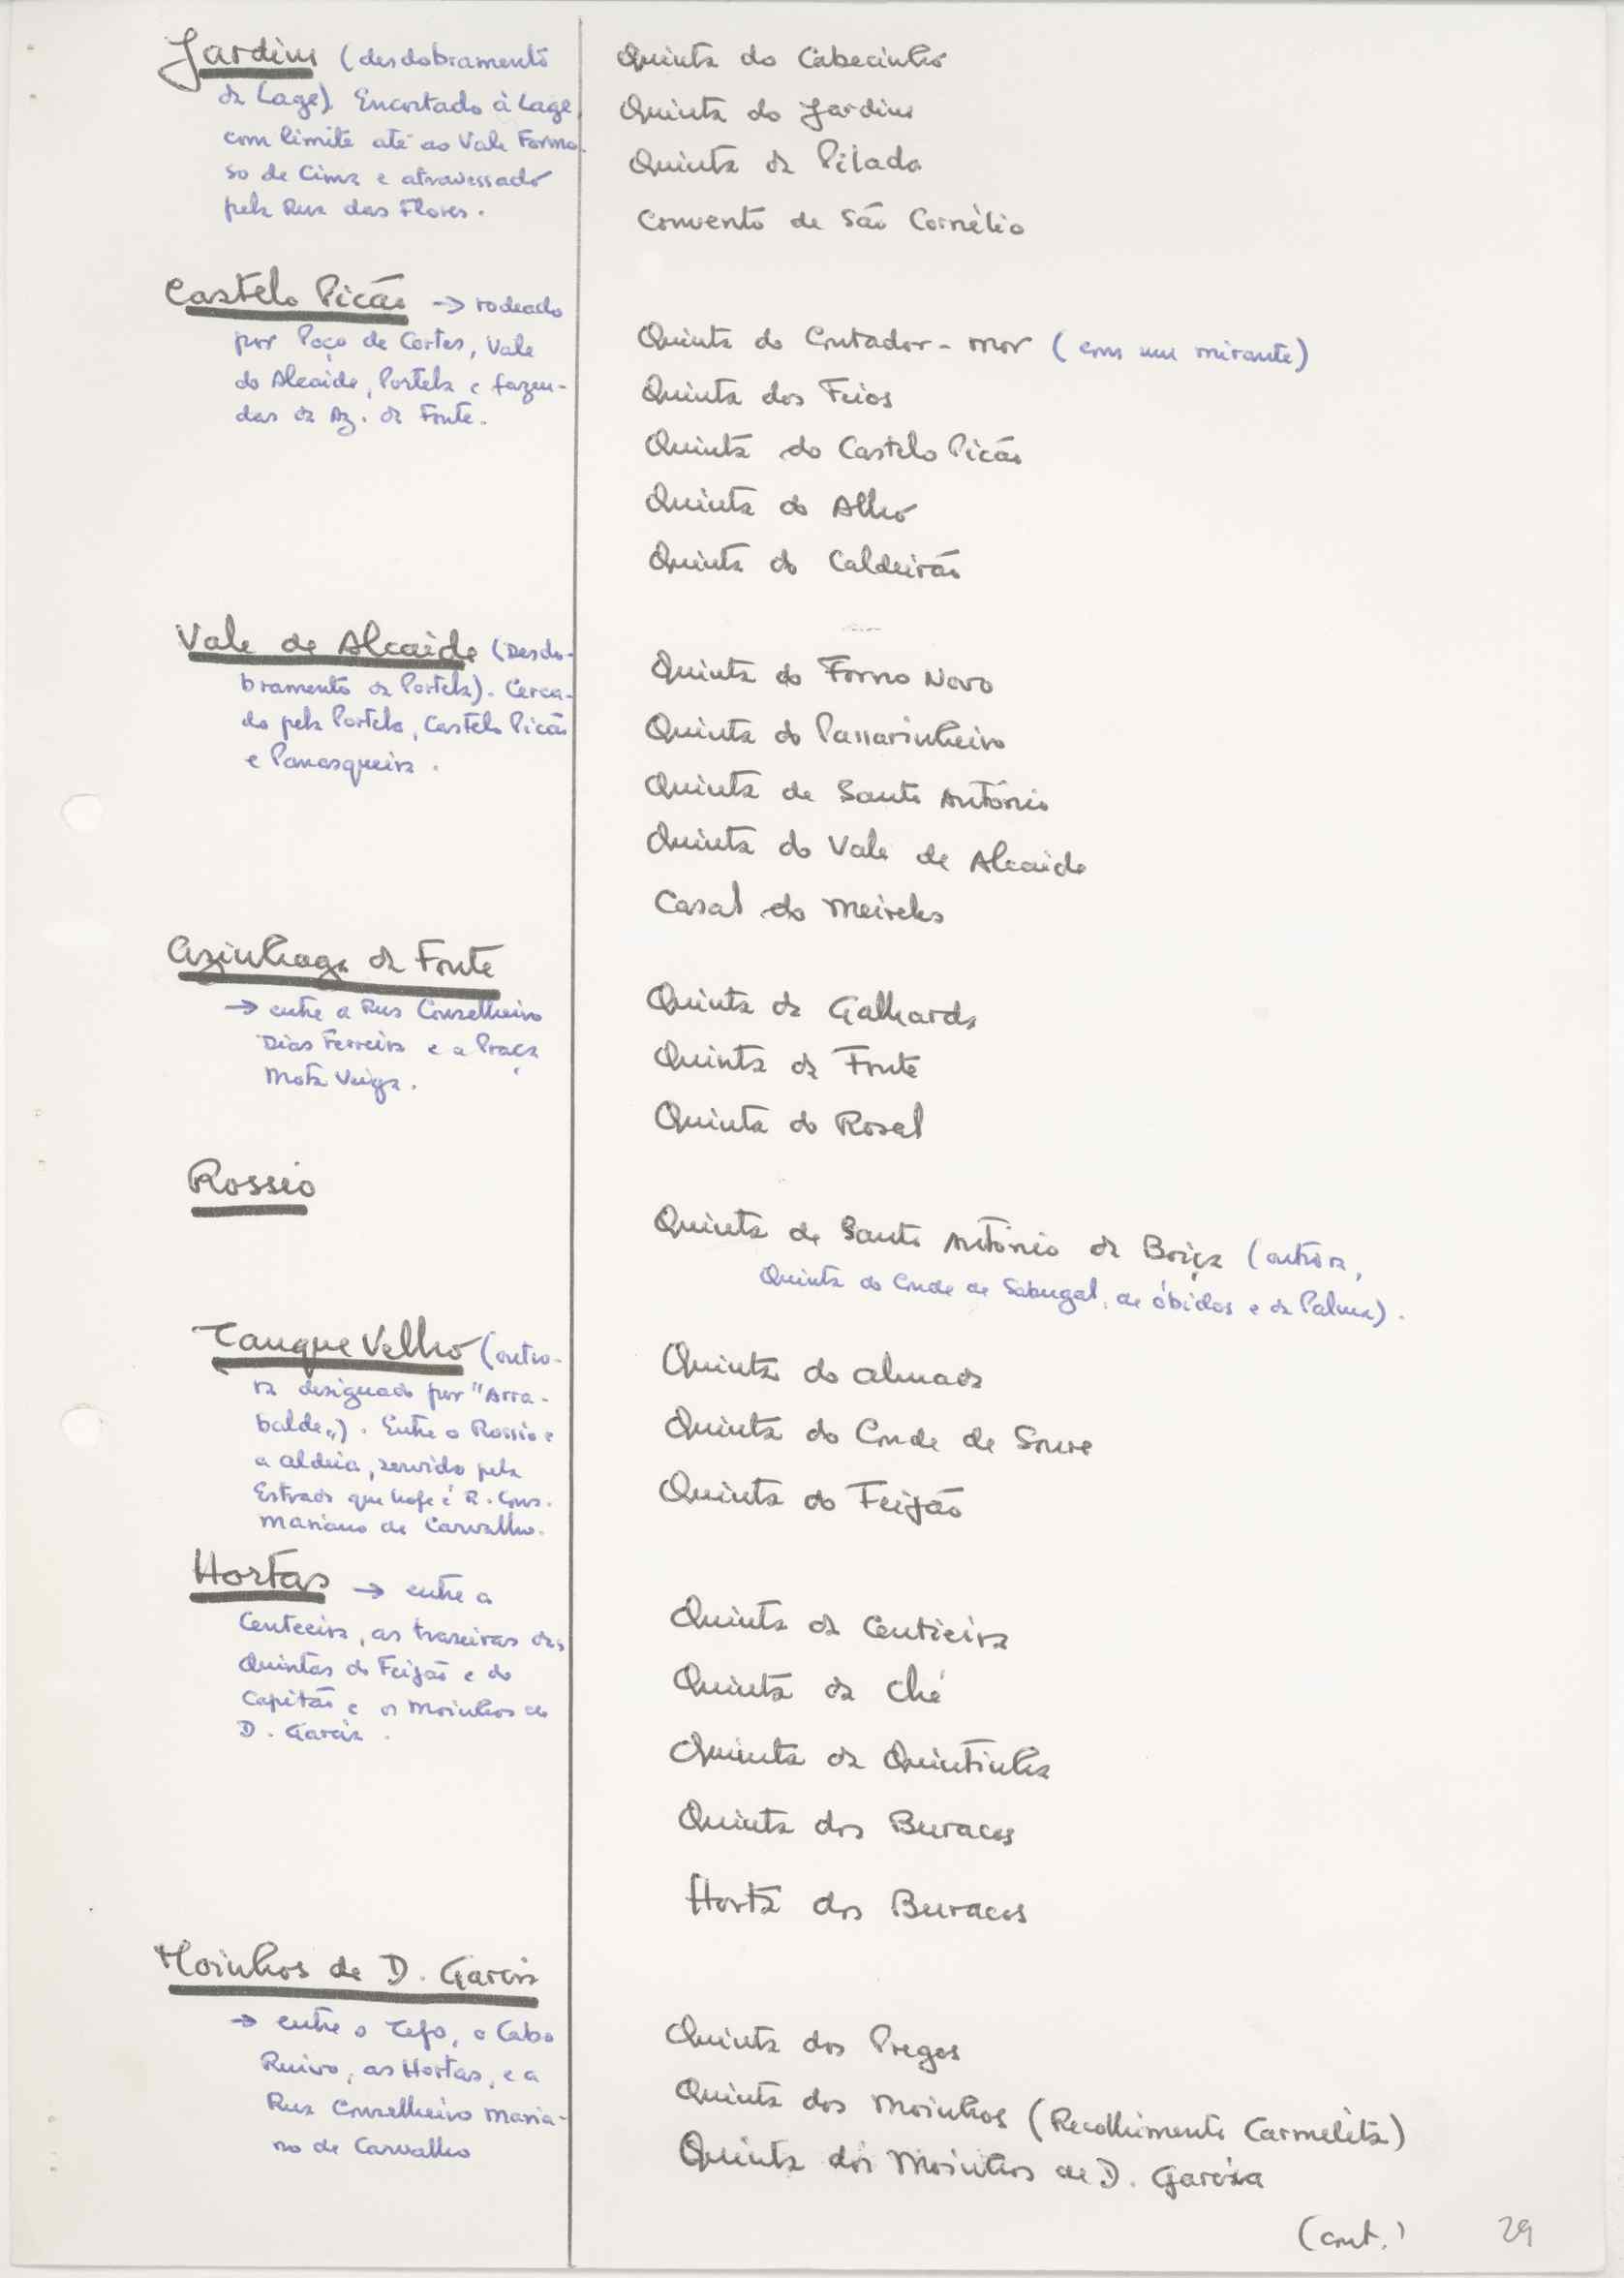 Jardim (desdobramento
da Lage). Encostado à Lage,
com limite até ao Vale Formo-
so de Cima e atravessado
pela Rua das Flores.
Quinta do Cabecinho
Quinta do Jardim
Quinta da Pilada
Convento de São Cornélio
Castelo Picão → rodeado
por Poço de Cortes, Vale
do Alcaide, Portela e fazen-
das da Az. da Fonte.
Quinta do Contador-mor (com um mirante)
Quinta dos Feios
Quinta do Castelo Picão
Quinta do Alho
Quinta do Caldeirão
Vale de Alcaide (Desdo-
bramento da Portela). Cerca-
do pela Portela, Castelo Picão
e Panasqueira.
Quinta do Forno Novo
Quinta do Passarinheiro
Quinta de Santo António
Quinta do Vale de Alcaide
Casal do Meireles
Azinhaga da Fonte
→ entre a Rua Conselheiro
Dias Ferreira e a Praça
Mota Veiga.
Quinta da Galharda
Quinta da Fonte
Quinta do Rosal
Rossio
Quinta de Santo António da Boiça (outrora,
Quinta do Conde de Sabugal, de óbidos e da Palma).
Tanque Velho (outro-
ra designado por "Arra-
balde"). Entre o Rossio e
a aldeia, servido pela
Estrada que hoje é R. Cons.
Mariano de Carvalho.
Quinta do Almada
Quinta do Conde de Soure
Quinta do Feijão
Hortas → entre a
Centeeira, as traseiras das
Quintas do Feijão e do
Capitão e os Moinhos de
D. Garcia.
Quinta da Centieira
Quinta da Ché
Quinta da Quintinha
Quinta dos Buracos
Horta dos Buracos
Moinhos de D. Garcia
→ entre o Tejo, o Cabo
Ruivo, as Hortas, e a
Rua Conselheiro Maria-
no de Carvalho
Quinta dos Pregos
Quinta dos Moinhos (Recolhimento Carmelita)
Quinta dos Moinhos de D. Garcia
(cont.) 29